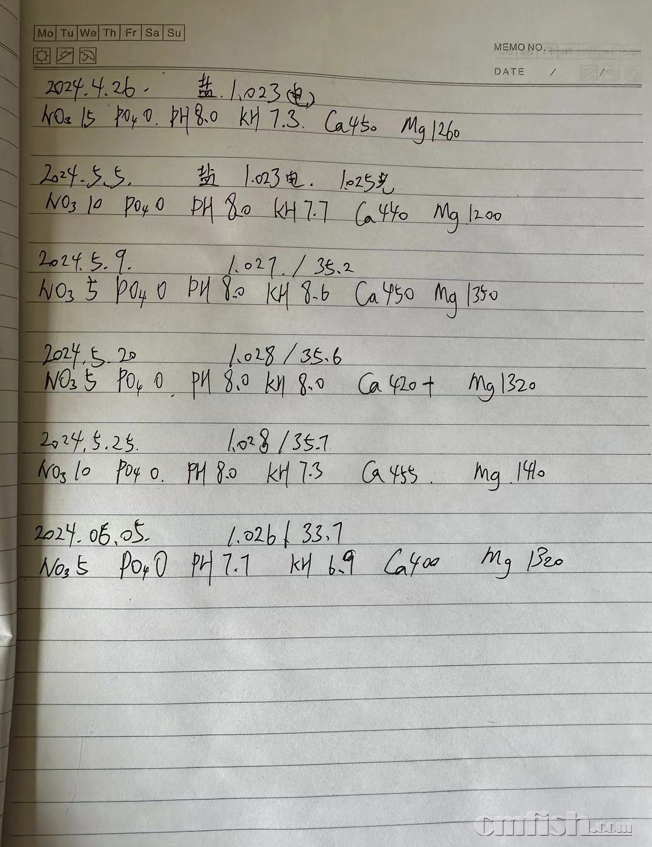 Mo Tu We Th Fr Sa Su
MEMO NO.
DATE / /
2024.4.26. 盐.1.023(电)
NO3 15 PO4 0. PH 8.0 KH 7.3. Ca 450 Mg 1260
2024.5.5. 盐 1.023电. 1.025光
NO3 10 PO4 0 PH 8.0 KH 7.7 Ca 440 Mg 1200
2024.5.9. 1.027./35.2
NO3 5 PO4 0 PH 8.0 KH 8.6 Ca 450 Mg 1350
2024.5.20 1.028/35.6
NO3 5 PO4 0. PH 8.0 KH 8.0 Ca 420+ Mg 1320
2024.5.25. 1.028/35.7
NO3 10 PO4 0. PH 8.0 KH 7.3 Ca 455. Mg.1410
2024.06.05. 1.026/33.7
NO3 5 PO4 0 PH 7.7 KH 6.9 Ca 400 Mg 1320
cmfish.com